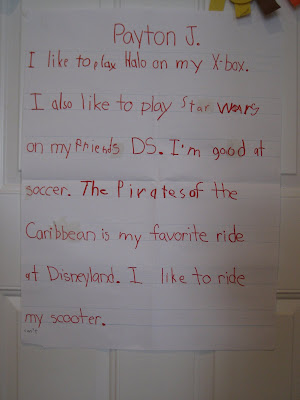 Payton J.
I like to play Halo on my X-box.
I also like to play Star Wars
on my Friends DS. I'm good at
soccer. The Pirates of the
Caribbean is my favorite ride
at Disneyland. I like to ride
my scooter.